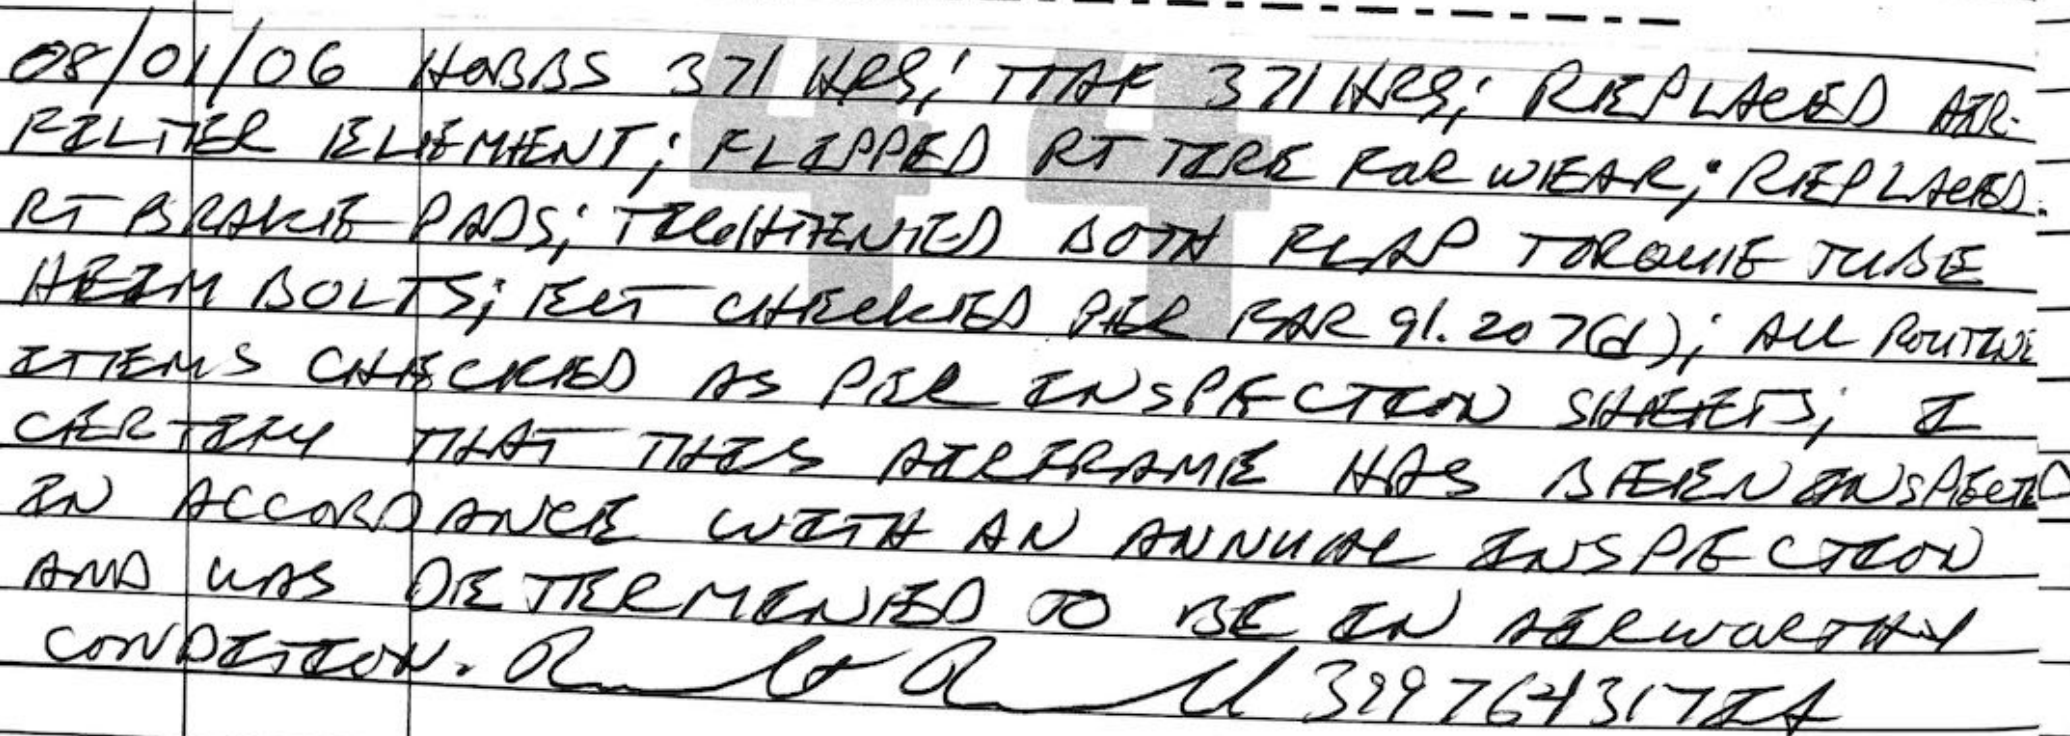 08/01/06 HOBBS 371 HRS; TTAF 371 HRS; REPLACED AIR
FILTER ELEMENT; FLIPPED RT TIRE FOR WEAR; REPLACED
RT BRAKE PADS; TIGHTENED BOTH FLAP TORQUE TUBE
HEIM BOLTS; ELT CHECKED PER FAR 91.207(d); ALL ROUTINE
ITEMS CHECKED AS PER INSPECTION SHEETS; I
CERTIFY THAT THIS AIRFRAME HAS BEEN INSPECTED
IN ACCORDANCE WITH AN ANNUAL INSPECTION
AND WAS DETERMINED TO BE IN AIRWORTHY
CONDITION. 399764317IA
44